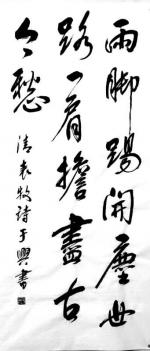 兩脚踢開塵世
路一肩擔盡古
今愁
清袁牧詩于興書